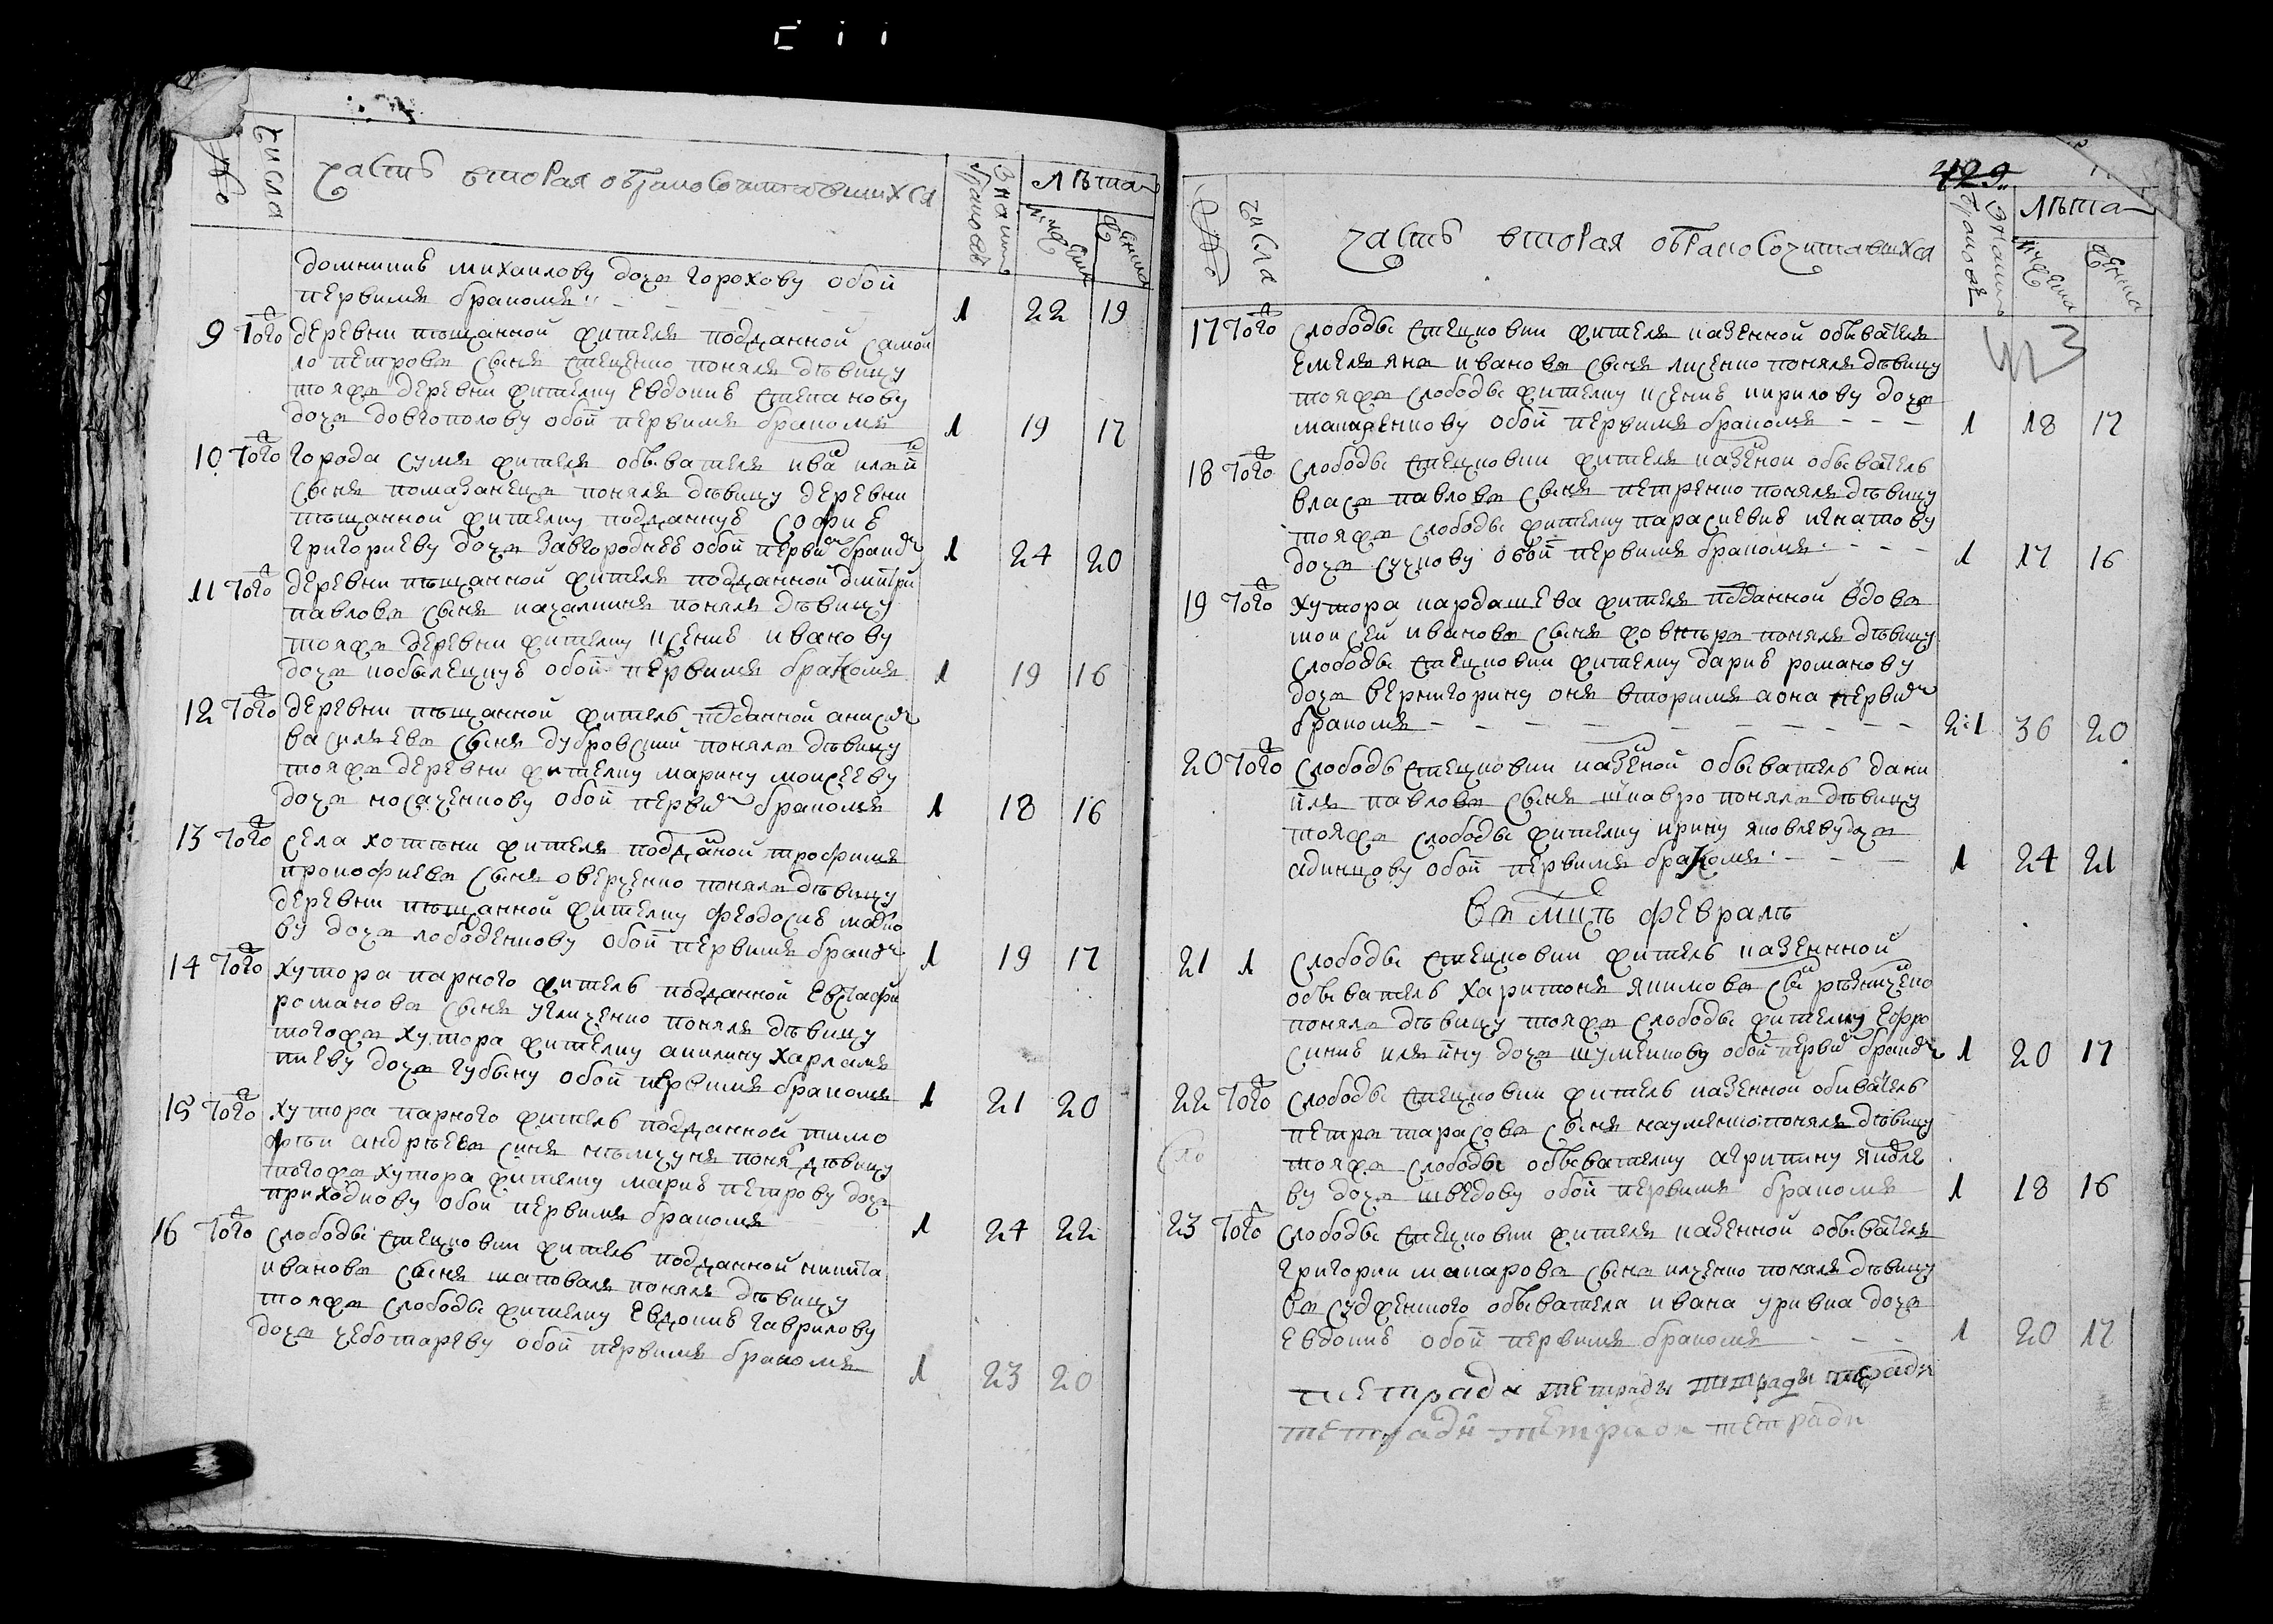 числа
часть вторая обракосочитавшихся
лѣта
домникѣ михаилову дочь горохову обои
первимъ бракомъ
1 22 19
9 того деревни пѣщанной житель подданной самой
ло петровъ сынъ стеценко понялъ дѣвицу
тояжъ деревни жителку евдокиѣ степанову
дочь довгополову обои первимъ бракомъ
1 19 17
10 того города сумъ житель обыватель ива илин
сынъ помазанецъ понялъ дѣвицу деревни
пѣщанной жителку подданнуѣ софиѣ
григориеву дочь завгороднѣѣ обои первим браком
1 24 20
11 того деревни пѣщанной житель подданной дмитри
павловъ сынъ качалникъ понялъ дѣвицу
тояжъ деревни жителку ксениѣ ивано ву
дочь кобылецкуѣ обои первимъ бракомъ
1 19 16
12 того деревни пѣщанной житель пддданной анисим
василиевъ сынъ дубровский понялъ дѣвицу
тояжъ деревни жителку марину моисееву
дочь носаченкову обои первим бракомъ
1 18 16
13 того села хотѣни житель подданой трофимъ
прокофиевъ сынъ оверченко понялъ дѣвицу
деревни пѣщанной жителку феодосиѣ
ву дочь лободенкову обои первимъ браком
1 19 17
14 того хутора парного житель подданной евстафи
романовъ сынъ угличенко понялъ дѣвицу
тогожъ хутора жителку акилину харлами
пиеву дочь губину обои первимъ бракомъ
1 21 20
15 того хутора парного житель подданной тимо
фѣи андрѣевъ синъ понял дѣвицу
тогожъ хутора жителку мариѣ петрову дочь
приходкову обои первимъ бракомъ
1 24 22
16 того слободы стецковки житель подданной никита
ивановъ сынъ шаповалъ понялъ дѣвицу
тояжъ слободы жителку евдокиѣ гаврилову
дочь чеботареву обои первимъ бракомъ
1 23 20
429
числа
часть вторая обракосочитавшихся
лѣта
17 того слободы стецковки житель казенной обыватель
емельянъ ивановъ сынъ лисенко понялъ дѣвицу
тояжъ слободы жителку ксениѣ кирилову дочь
обои первимъ бракомъ
1 18 17
18 того слободы стецковки житель казеной обыватель
власъ павловъ сынъ петренко понялъ дѣвицу
тояжъ слободы жителку параскевиѣ игнатову
дочь сучкову обои первимъ бракомъ
1 17 16
19 того хутора кардашева житель пдданной вдовъ
моисей ивановъ сынъ понялъ дѣвицу
слободы стецковки жителку дариѣ романову
дочь вернигорину онъ вторимъ аона первим
бракомъ
2:1 36 20
20 того слободы стецковки казеной обыватель дани
илъ павловъ сынъ шкавро понялъ дѣвицу
тояжъ слободы жителку ирину яковлеву дочь
адинцову обои первимъ бракомъ
1 24 21
въ мцѣ февралѣ
21 1 слободы стецковки житель казеннной
обыватель харитонъ якимовъ сы рѣзниченко
понялъ дѣвицу тояжъ слободы жителку ефро
синиѣ илѣину дочь шулмикову обои первим браком
1 20 17
22 того слободы стецковки житель казенной обиватель
петръ тарасовъ сынъ науменко понялъ дѣвицу
тояжъ слободы обывателку агрипину яковле
ву дочь шведову обои первимъ бракомъ
1 18 16
23 того слободы стецковки житель казенной обыватель
григорий макаровъ сынъ илченко понялъ дѣвицу
обывателя ивана дочь
евдокиѣ обои первимъ бракомъ
1 20 17
тетради тетради тетради тетради
тетради тетради тетради